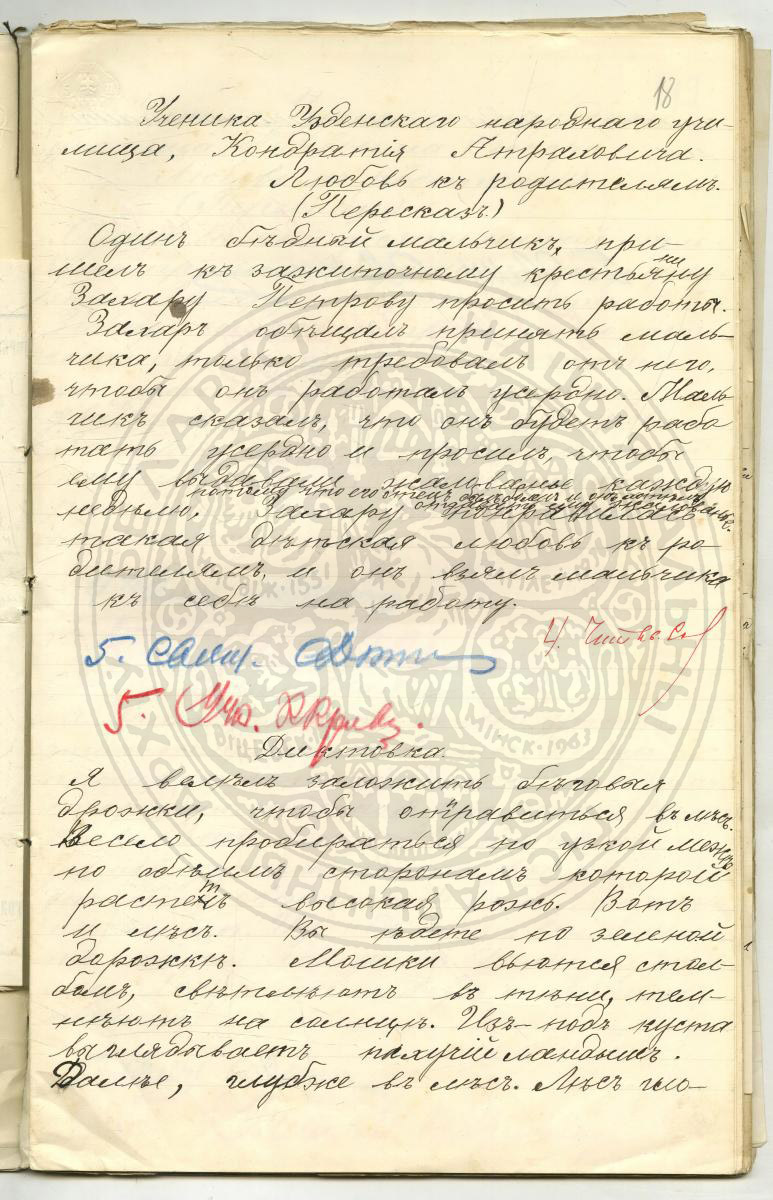 18
Ученика Узденскаго народнаго учи-
лища, Кондратія Атраховича.
Любовь къ родителямъ.
(Пересказъ)
Одинъ бѣдный мальчикъ, при-
шелъ къ зажиточному крестьянину
Захару Петрову просить работы.
Захаръ обѣщалъ принять маль-
чика, только требовалъ отъ него,
чтобы онъ работалъ усердно. Маль
чикъ сказалъ, что онъ будетъ рабо
тать усердно и просилъ, чтобы
ему выдавали жалованье каждую
потому что его отецъ
недѣлю, Захару понравилась
такая дѣтская любовь къ ро-
дителямъ, и онъ взялъ мальчика
къ себѣ на работу.
4.
5.
5. Уч.
Диктовка.
Я велѣлъ заложить бѣговыя
дрожки, чтобы отправиться въ лѣсъ.
Весело пробираться по узкой межѣ
по обѣимъ сторонамъ которой
растетъ высокая рожь. Вотъ
и лѣсъ. Вы ѣдете по зеленой
дорожкѣ. Мошки вьются стол-
бомъ, свѣтлѣютъ въ тѣни, тем-
нѣютъ на солнцѣ. Изъ-подъ куста
выглядываетъ пахучій ландышъ.
Далѣе, глубже въ лѣсъ. Лѣсъ гло-